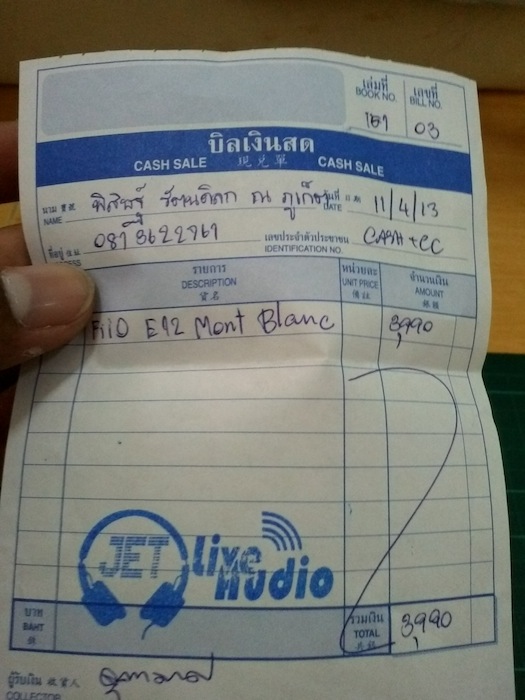 เล่มที่ เลขที่
BOOK NO. BILL NO.
03
บิลเงินสด
CASH SALE 現兑單 CASH SALE
นาม วันที่ 11/4/13
NAME พิสิษฐ์ ณ ภูเก็ต DATE
ที่อยู่ 081 3622961 เลขประจำตัวประชาชน CASH + CC
IDENTIFICATION NO.
รายการ หน่วยละ จำนวนเงิน
DESCRIPTION UNIT PRICE AMOUNT
貨名
FiiO E12 Mont Blanc 3,990
JET Live Audio
บาท รวมเงิน 3,990
BAHT TOTAL
ผู้รับเงิน 收貨人
COLLECTOR